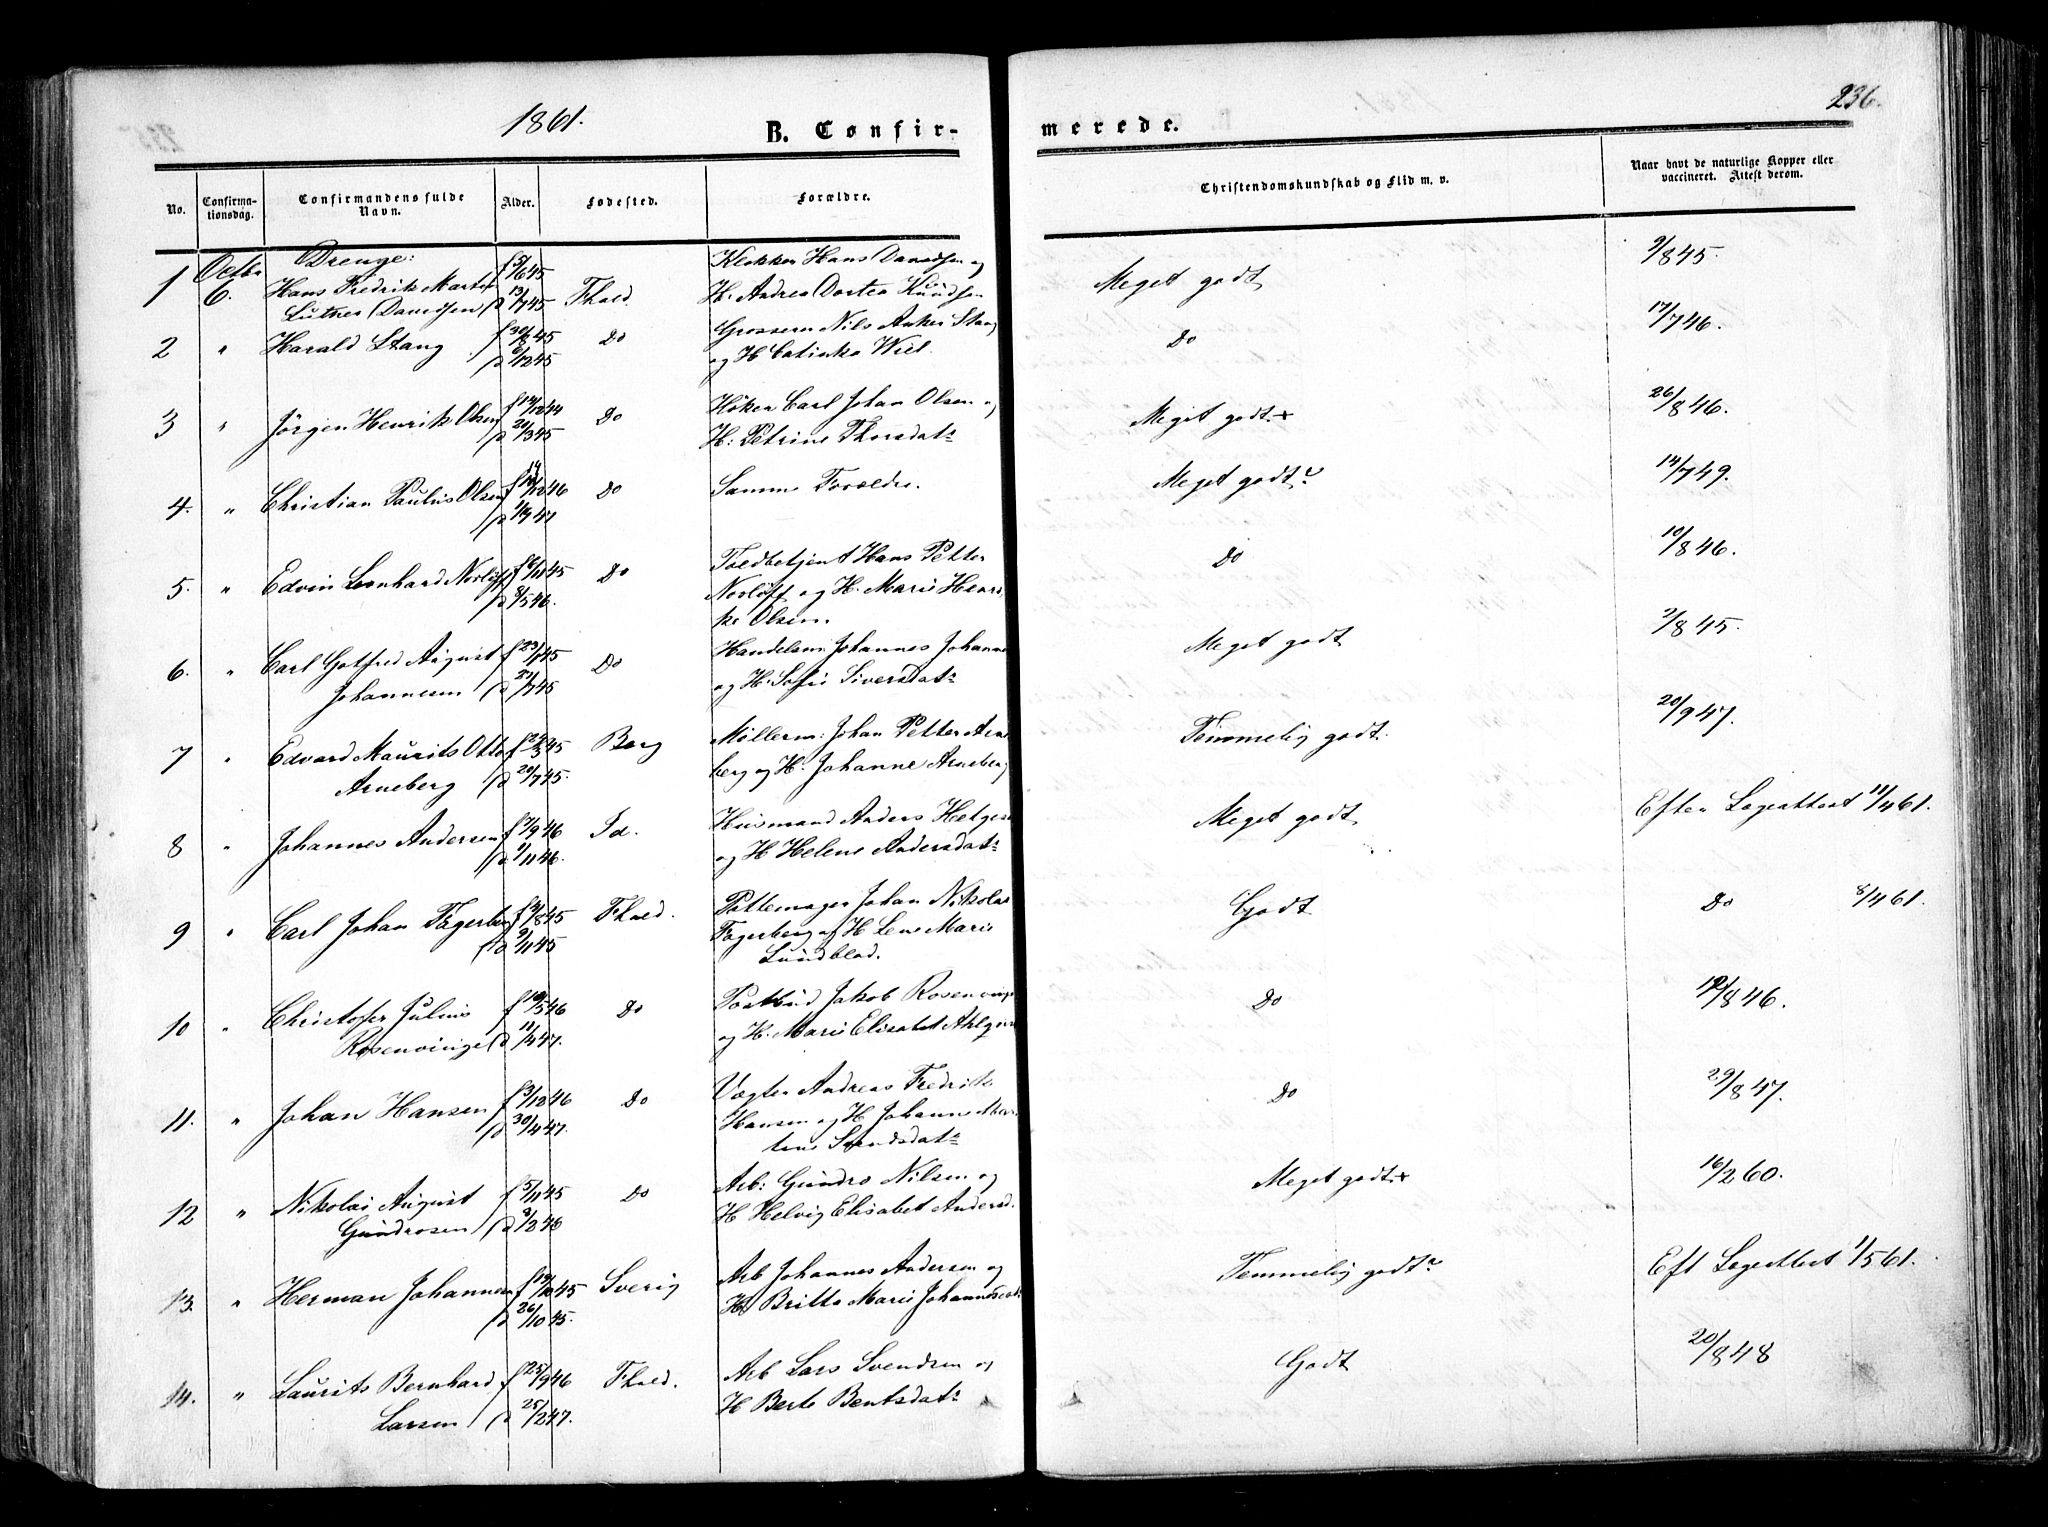 1861.
236.
B. Confir-
merede.
No.
Confirma-
tionsdag.
Confirmandens fulde
Navn.
Alder.
Fødested.
Forældre.
Christendomskundskab og Flid m. v.
Naar havt de naturlige Kopper eller
vaccineret. Attest derom.
Drenge:
1 Octbr 6. Hans Fredrik Marten f 5/6 45 Klokker Hans Davidsen og
Luther Davidsen d 13/7 45 Fhald. H. Andrea Dortea Knudsen Meget godt 9/8 45.
2 " Harald Stang f 30/8 45 Do Grosserer Nils Anker Stang Do 17/7 46.
d 6/12 45 og H Catinka Wiel.
3 " Jörgen Henrik Olsen f 14/12 44 Do Höker Carl Johan Olsen og Meget godt + 26/8 46.
d 24/3 45 H: Petrine Thorsdatr
4. " Christian Paulus Olsen f 14/12 46 Do Samme Forældre. Meget godt 14/7 49.
d 1/9 47
5. " Edvin Leonhard Norlöff f 6/11 45 Do Toldbetjent Hans Petter Do 10/8 46.
d 8/5 46. Norlöff og H. Marie Henri
ke Olsen.
6. " Carl Gotfred August f 23/1 45 Do Handelsm Johannes Johannes Meget godt 7/8 45.
Johannesen d 20/7 45 og H: Sofie Siversdatr
7 " Edvard Maurits Otto f 24/3 45 Berg Møllerm: Johan Petter Arne Temmelig godt. 20/9 47.
Arneberg d 20/7 45. berg og H. Johanne Arneberg
8 " Johannes Andersen f 7/9 46 Id. Husmand Anders Helges Meget godt Efter Lægeattest 11/4 61.
d 1/11 46. og H Helene Andersdatr
9 " Carl Johan Fagerberg f 14/8 45 Fhald. Pottemager Johan Nikolai Godt Do 8/4 61.
d 9/11 45 Fagerberg og H Lene Marie
Lundblad.
10 " Christofer Julius f 19/5 46 Do Postbud Jakob Rosenvinge Do 12/8 46.
Rosenvinge d 11/4 47. og H. Marie Elisabet Ahlgren
11. " Johan Hansen f 3/12 46 Do Vægter Andreas Fredrik Do 29/8 47.
d 30/4 47. Hansen og H Johanne Mar
tine Svendsdatr
12 " Nikolai August f 5/11 45 Do Arb: Gundro Nilsen og Meget godt + 16/2 60.
Gundrosen d 3/2 46 H Helvig Elisabet Andersd.
13. " Herman Johannesen f 19/10 45 Sverig Arb Johannes Andersen og Temmelig godt Eft Lægeattest 1/5 61.
d 26/10 45. H. Britta Marie Johannesd
14. " Laurits Bernhard f 25/9 46 Fhald. Arb Lars Svendsen og Godt 20/8 48
Larsen d 25/2 47. H Berte Bentsdatr